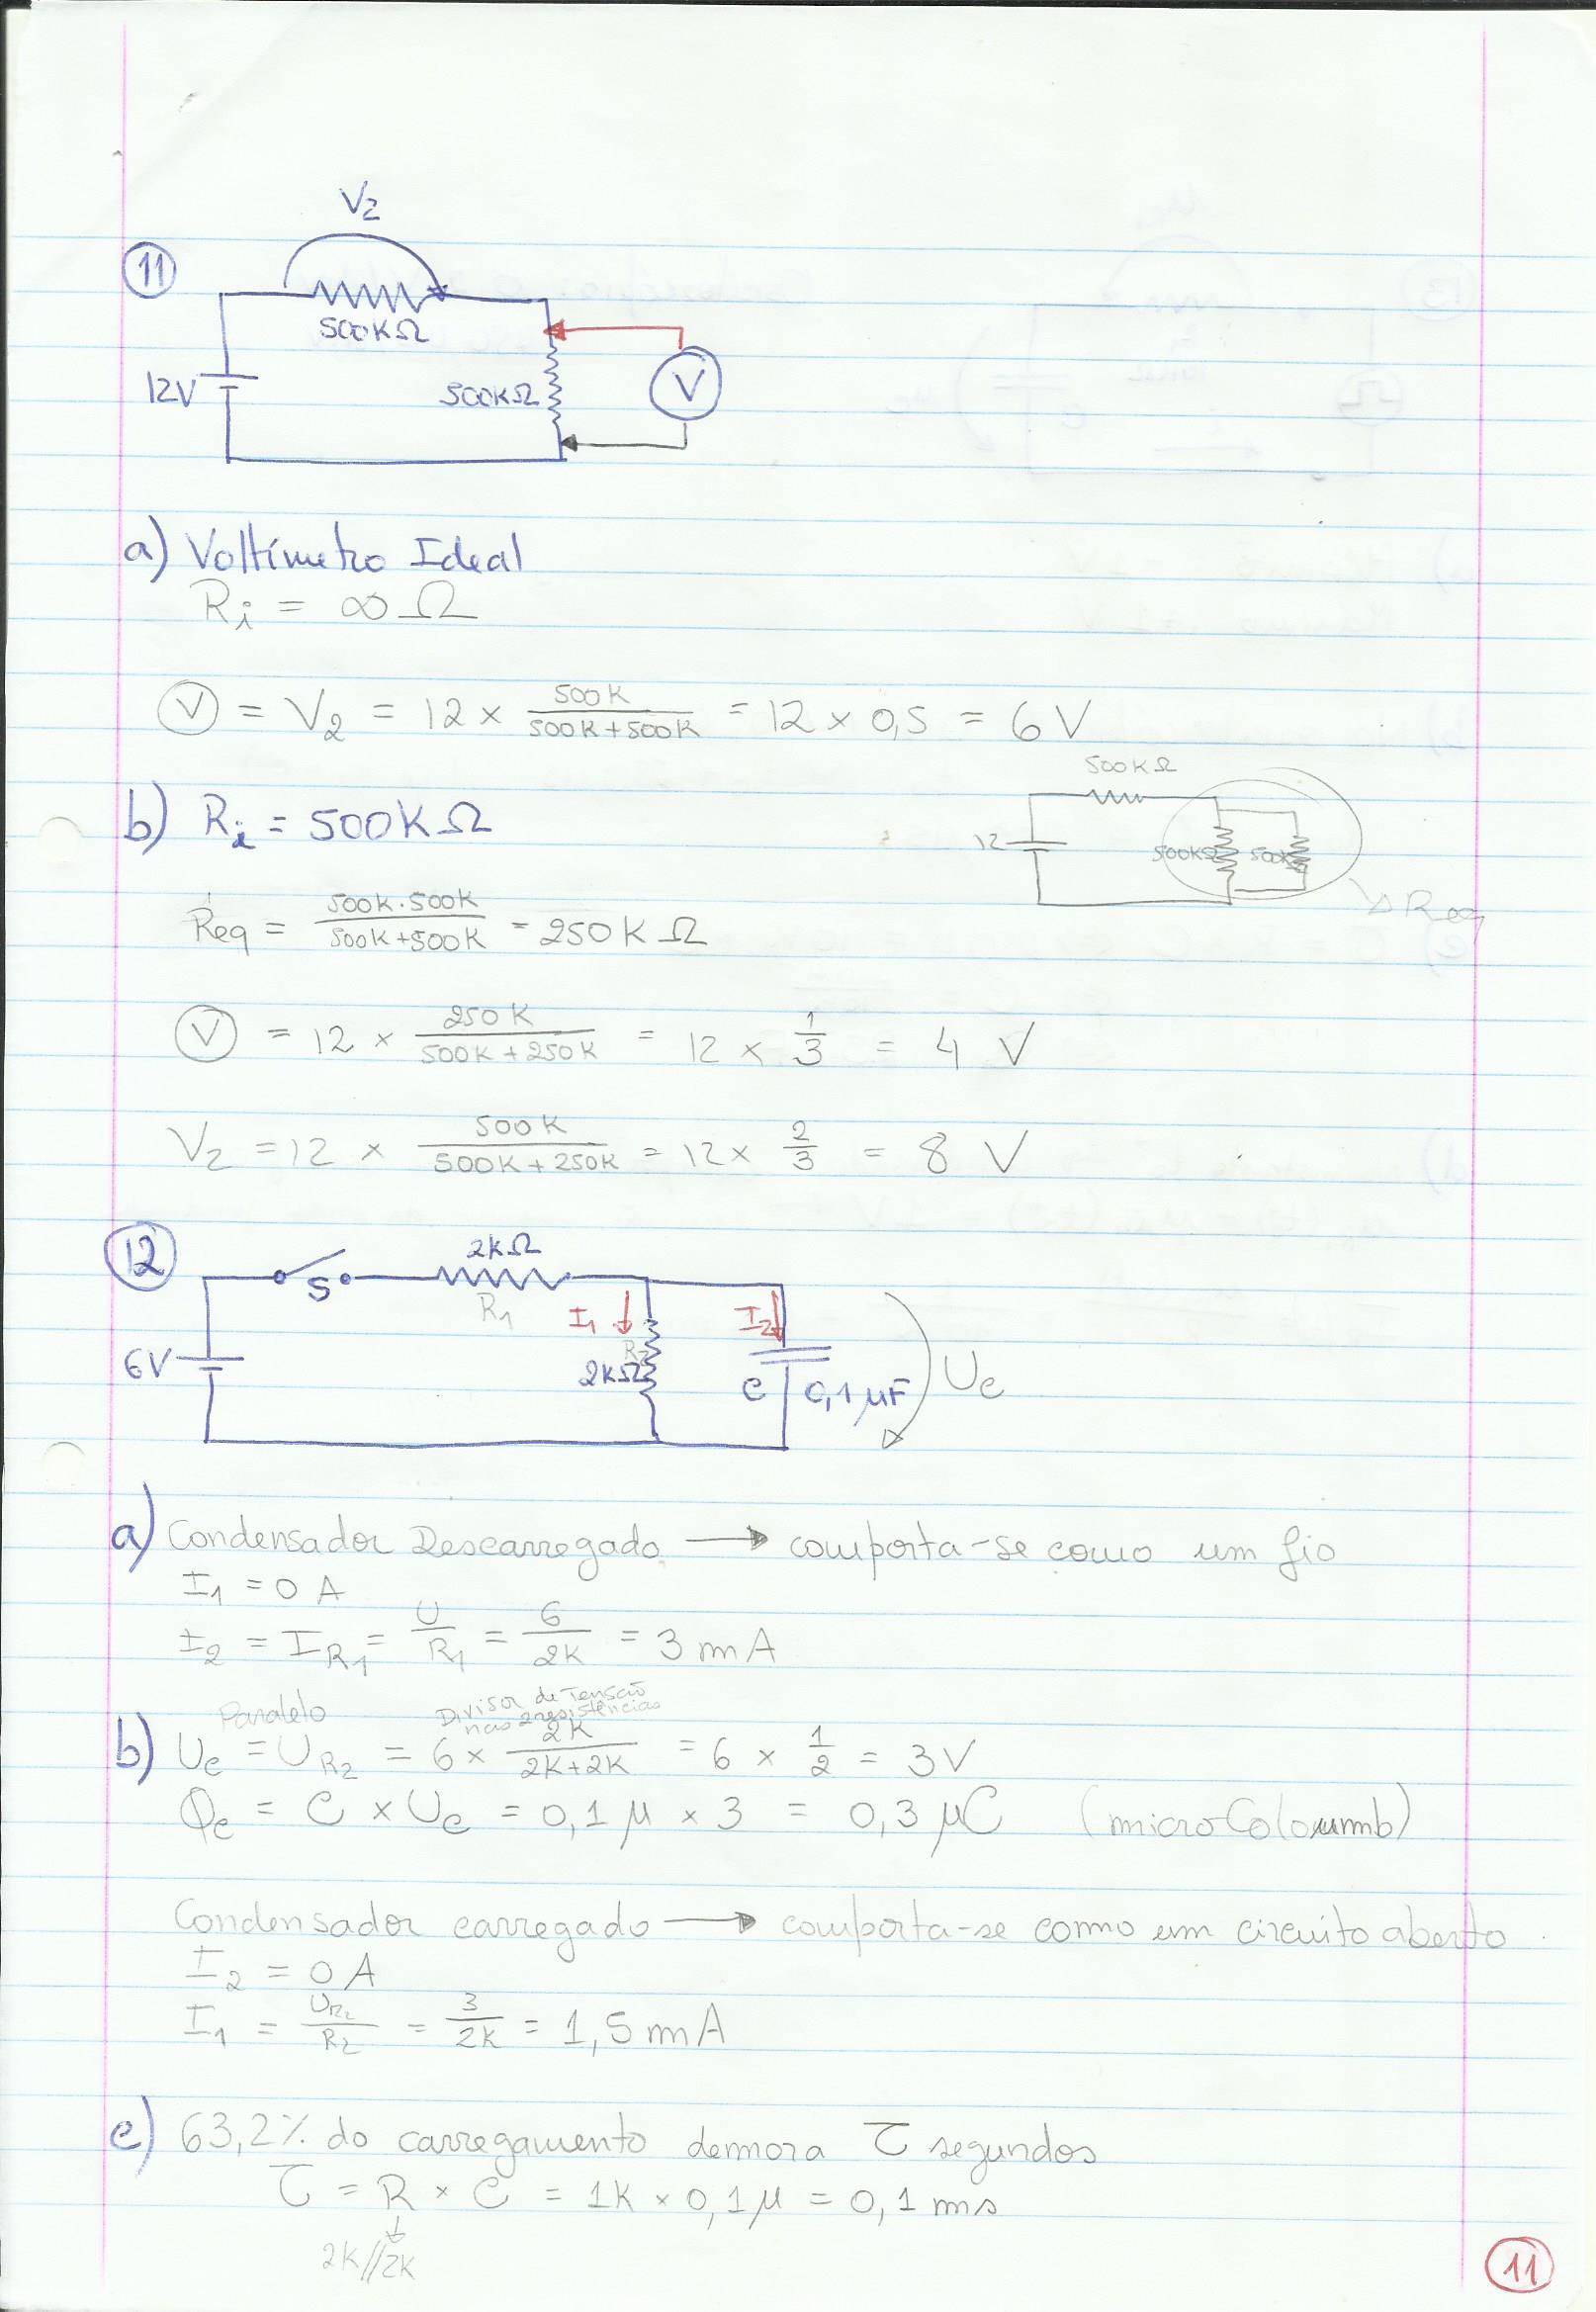 V2
11
500KΩ
12V
500KΩ
V
a) Voltímetro Ideal
Ri = ∞ Ω
V = V2 = 12 × 500K / (500K+500K) = 12 × 0,5 = 6 V
500KΩ
b) Ri = 500KΩ
12
500KΩ
500K
Req
Req = 500K.500K / (500K+500K) = 250KΩ
V = 12 × 250K / (500K+250K) = 12 × 1/3 = 4 V
V2 = 12 × 500K / (500K+250K) = 12 × 2/3 = 8 V
12
2kΩ
S
R1
I1
I2
R2
6V
2kΩ
C 0,1 μF
Uc
a) Condensador Descarregado → comporta-se como um fio
I1 = 0 A
I2 = IR1 = U/R1 = 6/2k = 3 mA
Paralelo
Divisor de Tensão
nas 2 resistências
b) Uc = UR2 = 6 × 2k / (2k+2k) = 6 × 1/2 = 3V
Qc = C × Uc = 0,1 μ × 3 = 0,3 μC (micro Coloumb)
Condensador carregado → comporta-se como um circuito aberto
I2 = 0 A
I1 = UR2/R2 = 3/2k = 1,5 mA
c) 63,2% do carregamento demora τ segundos
τ = R × C = 1k × 0,1 μ = 0,1 ms
2k//2k
11